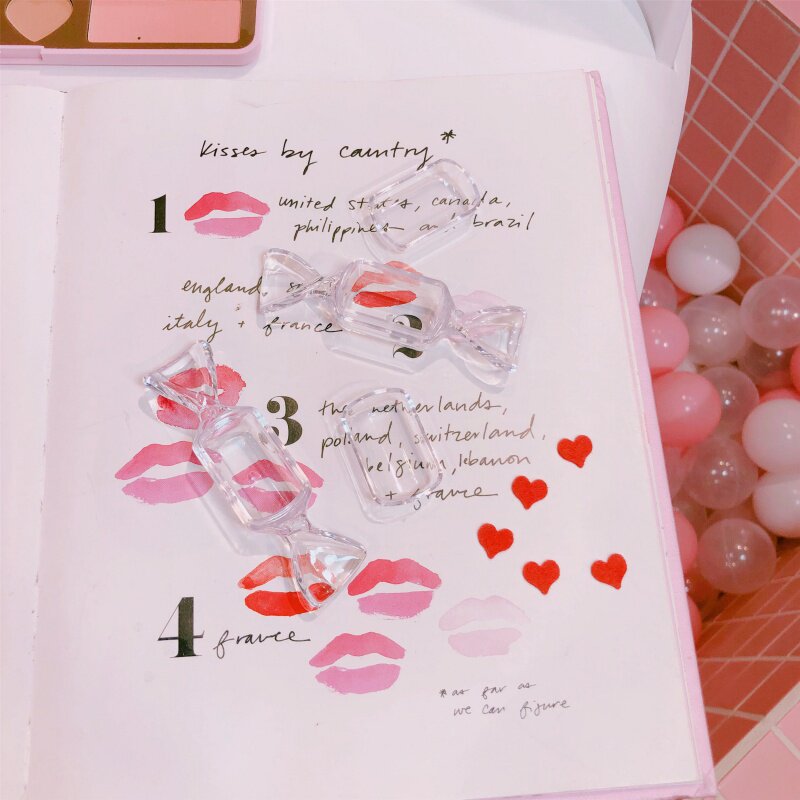 kisses by country*
1 united states, canada,
philippines and brazil
england,
italy + france
2
3 the netherlands,
poland, switzerland,
belgium, lebanon
+ france
4 france
*as far as
we can figure